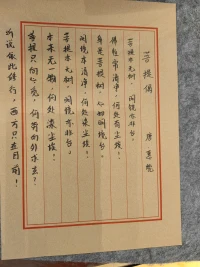 菩提偈
唐 惠能
菩提本无树，明镜亦非台。
佛性常清净，何处有尘埃！
身是菩提树，心如明镜台。
明镜本清净，何处染尘埃！
菩提本无树，明镜亦非台。
本来无一物，何处惹尘埃！
菩提只向心觅，何劳向外求玄？
听说依此修行，西方只在目前！